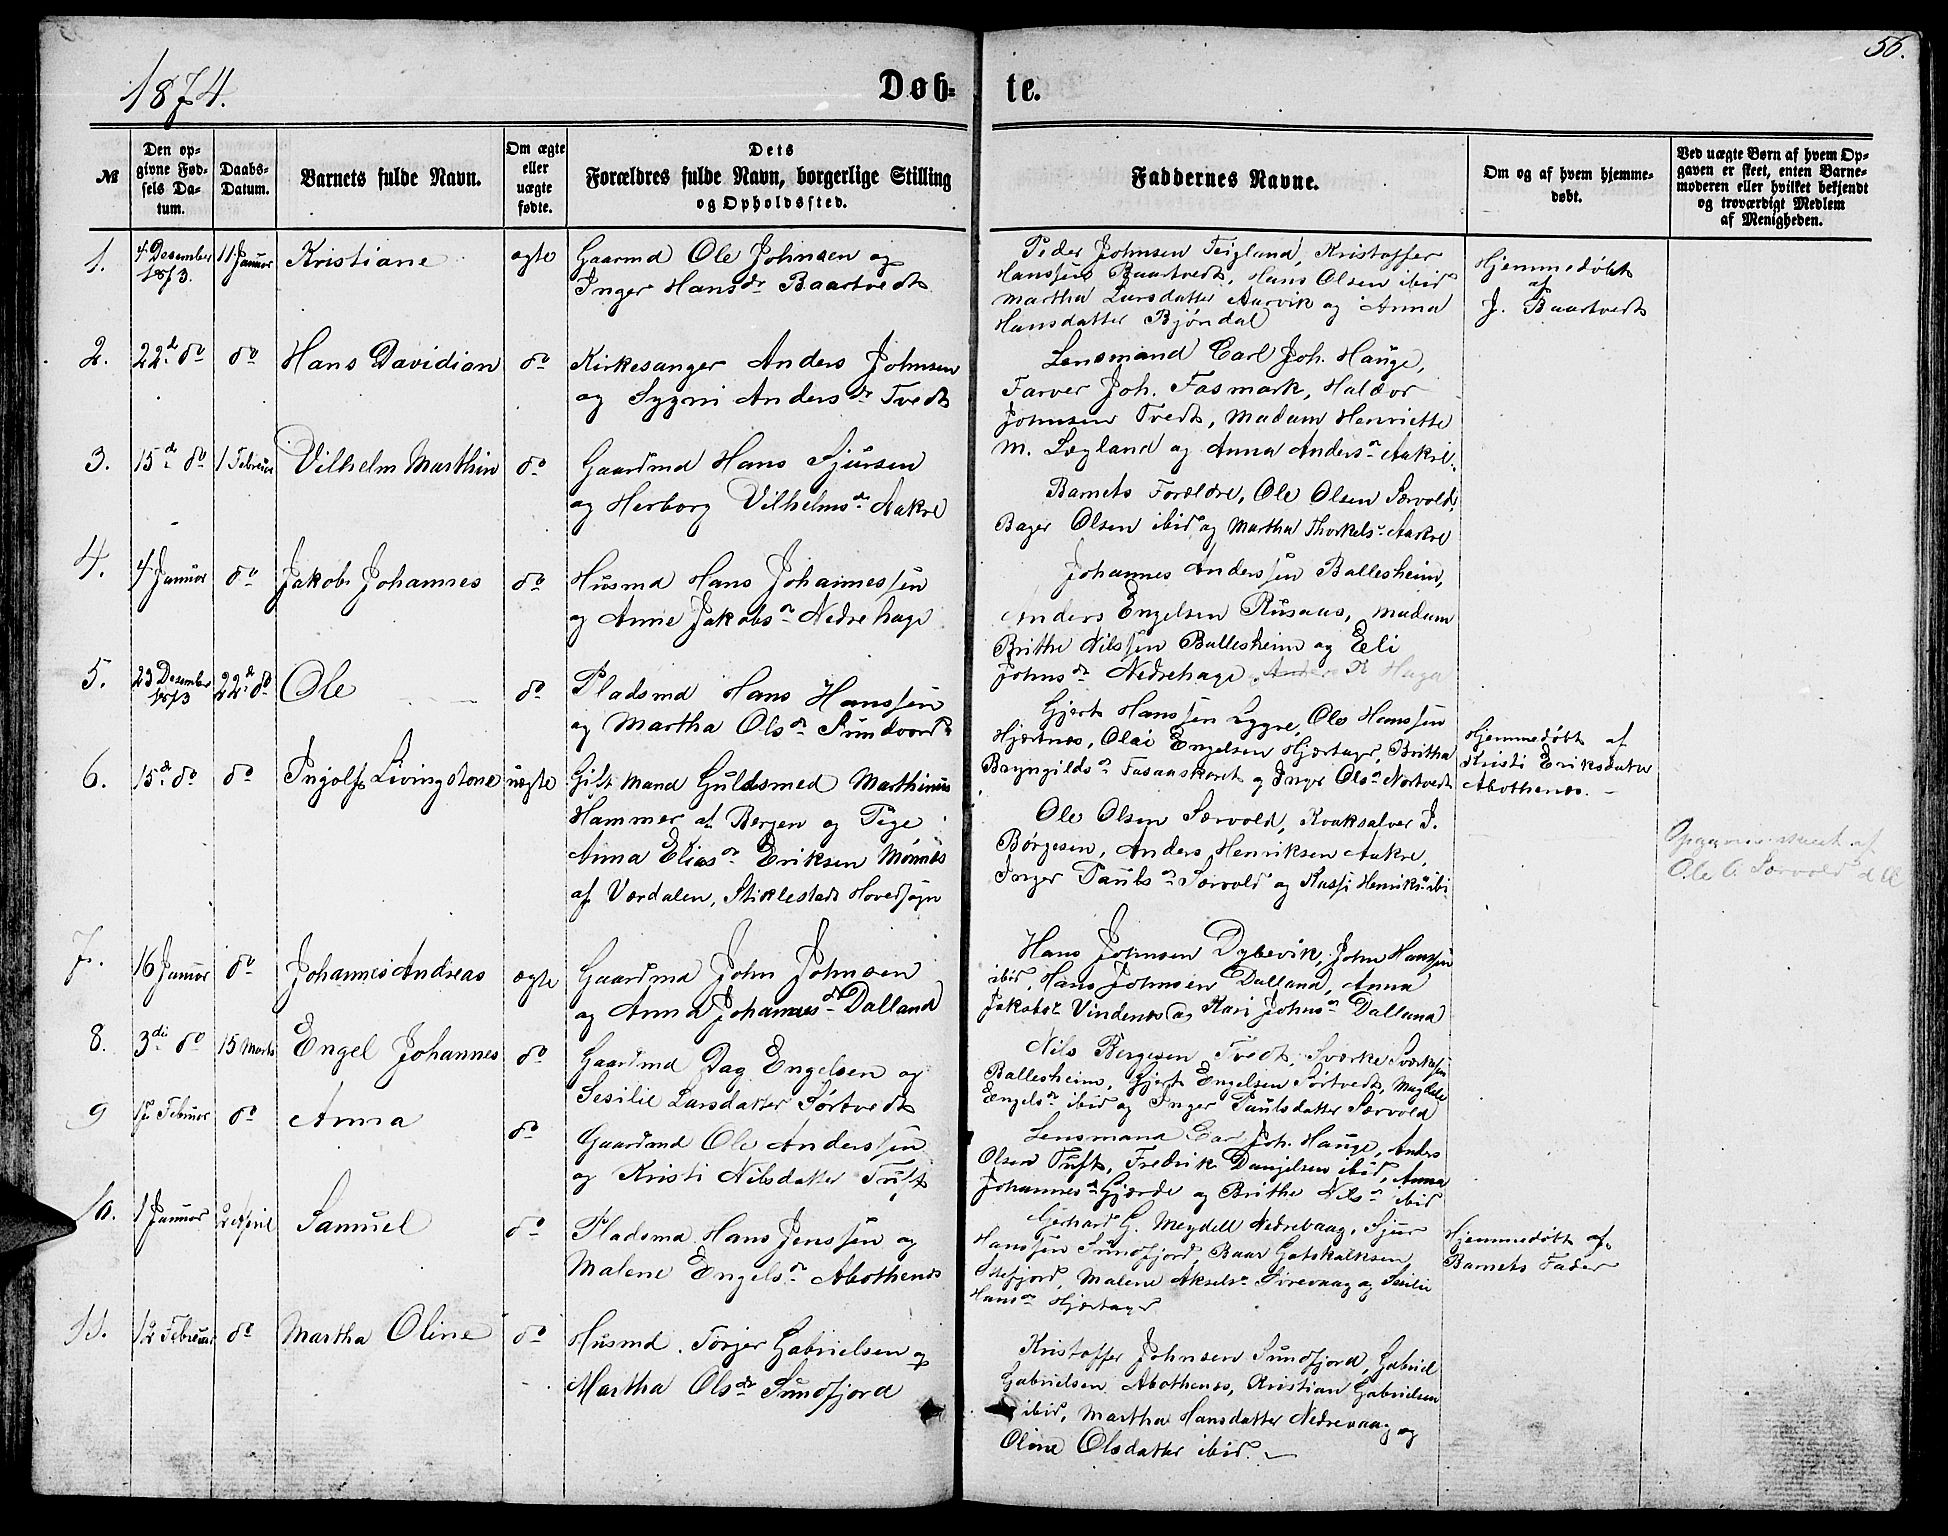 1874.
Døb-
te.
56.
№
Den op-
givne Fød-
sels Da-
tum.
Daabs-
Datum.
Barnets fulde Navn.
Om ægte
eller
uægte
fødte.
Dets
Forældres fulde Navn, borgerlige Stilling
og Opholdssted.
Faddernes Navne.
Om og af hvem hjemme-
døbt.
Ved uægte Børn af hvem Op-
gaven er skeet, enten Barne-
moderen eller hvilket bekjendt
og troværdigt Medlem
af Menigheden.
1.
4 Desember
1873.
11 Januar
Kristiane
ægte
Gaarmd Ole Johnsen og
Inger Hansdr Baartvedt
Peder Johnsen Teigland, Kristoffer
Hanssen Baartvedt, Hans Olsen ibid
Martha Larsdatter Aarvik og Anna
Hansdatter Bjöndal
Hjemmedöbt
af
J. Baartvedt
2.
22d do
do
Hans Davidian
do
Kirkesanger Anders Johnsen
og Sygni Andersdr Tvedt
Lensmand Carl Joh. Hauge,
Farver Joh. Fasmark, Haldor
Johnsen Tvedt, Madam Henriette
M. Lægland og Anna Andersdr Aakre.
3.
15d do
1 Februar
Vilhelm Marthin
do
Gaardmd Hans Sjursen
og Herborg Vilhelmsdr Aakre
Barnets Forældre, Ole Olsen Særvold,
Bager Olsen ibid og Martha Thorkelsdr Aakre
4.
4 Januar
do
Jakob Johannes
do
Husmd Hans Johannessen
og Anne Jakobsdr Nedrehage
Johannes Anderssen Ballesheim,
Anders Engelsen Rusaas, Madam
Brithe Nilssen Ballesheim og Eli
Johnsdr Nedrehage
5.
23 Desember
1873
22d do
Ole
do
Pladsmd Hans Hanssen
og Martha Olsdr Sundvord
Gjert Hanssen Lygre, Ole Hanssen
Hjartnes, Olai Engelsen Hjartager, Britha
Bryngildsdr Fasaaskaret og Inger Olsdr Nortvedt
Hjemmedöbt af
Kristi Eriksdatter
Abothenes.
6.
15d do
do
Ingolf Livingstone
uægte
Gift Mand Guldsmed Marthinus
Hammer af Bergen og Pige
Anna Eliasdr Eriksen Mönnes
af Værdalen, Stiklestads Hovedsogn
Ole Olsen Særvold, Kvaksalver J.
Börgesen, Anders Henriksen Aakre,
Inger Paulsdr Særvold og Kassi Henriksdr ibi.
af
Ole O. Særvold
7.
16 Januar
do
Johannes Andreas
ægte
Gaardmd John Johnsen
og Anna Johannesdr Dalland
Hans Johnsen Dybevik, John Hanssen
ibid, Hans Johnsen Dalland, Anna
Jakobsdr Vindenes og Kari Johnsdr Dalland
8.
3die do
15 Marts
Engel Johannes
do
Gaardmd Dag Engelsen og
Sesilie Larsdatter Sörtvedt
Nils Bergesen Tvedt, Sværke Sværkesen
Ballesheim, Gjert Engelsen Sörtvedt, Magdele
Engelsdr ibid og Inger Paulsdatter Særvold
9
Februar
do
Anna
do
Gaardmd Ole Anderssen
og Kristi Nilsdatter Tuft
Lensmand Carl Joh. Hauge, Anders
Olsen Tuft, Fredrik Danjelsen ibid, Anna
Johannesdr Gjærde og Brithe Nilsdr ibid
10.
1 Januar
2 April
Samuel
do
Pladsmd. Hans Jenssen og
Malene Engelsdr Abothenes
Gerhard G. Meydell Nedrevaag, Sjur
Hanssen Sundfjord, Baar Gotskalksen
Malene Akselsdr Sörevaag og Sesilie
Hansdr Hjartager
Hjemmedöbt af
Barnets Fader
11.
12 Februar
do
Martha Oline
do
Husmd. Torjer Gabrielsen og
Martha Olsdr Sundfjord
Kristoffer Johnsen Sundfjord, Gabriel
Gabrielsen Abothenes, Kristian Gabrielsen
ibid, Martha Hansdatter Nedrevaag og
Oline Olsdatter ibid.